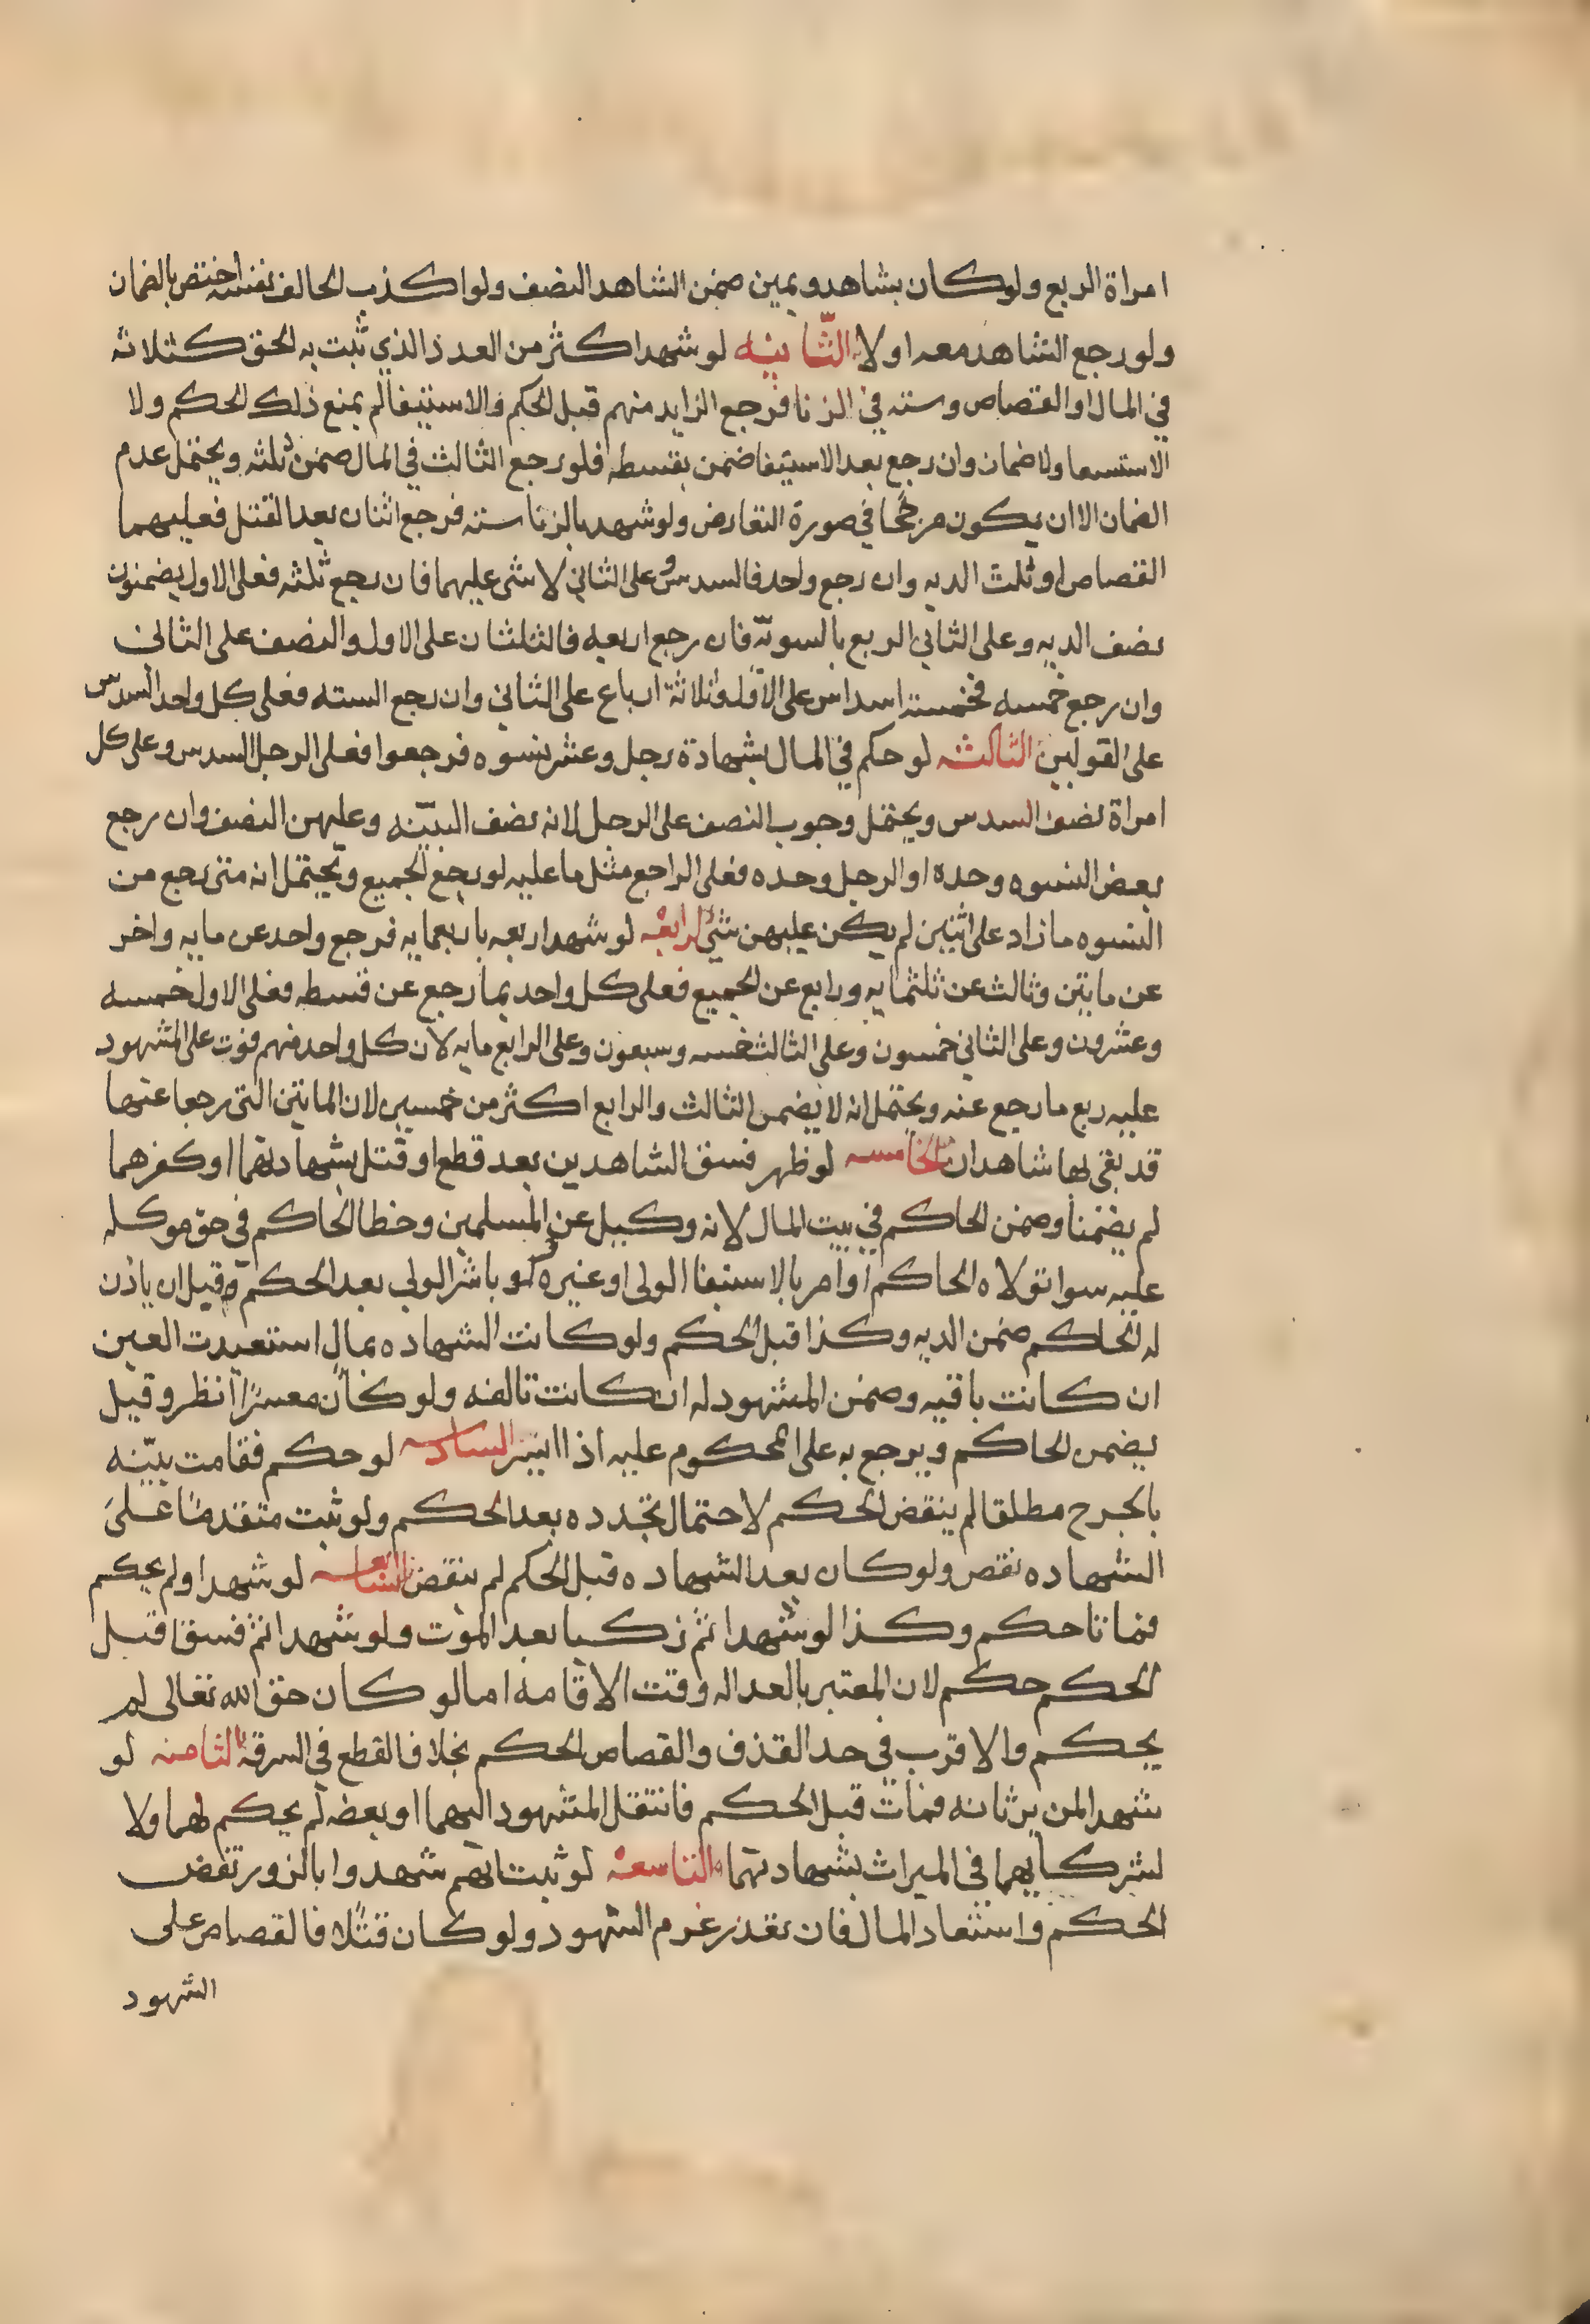 امراة الربع ولو كان بشاهد ويمين ضمن الشاهد النصف ولو اكذب الحالف نفسه اختص بالضمان
ولو رجع الشاهد معه او لا الثانيه لو شهد اكثر من العدد الذي يثبت به الحق كثلاثه
في المال او القصاص وسته في الزنا فرجع الزايد منهم قبل الحكم والاستيفا لم يمنع ذلك الحكم ولا
الاستيفا ولا ضمان وان رجع بعد الاستيفا ضمن بقسطه فلو رجع الثالث في المال ضمن ثلثه ويحتمل عدم
الضمان الا ان يكون مرجحا في صورة التعارض ولو شهد بالزنا سته فرجع اثنان بعد القتل فعليهما
القصاص او ثلث الديه وان رجع واحد فالسدس وعلى الثاني لا شى عليهما فان رجع ثلثه فعلى الاول يضمنون
نصف الديه وعلى الثاني الربع بالسويّة فان رجع اربعه فالثلثان على الاول والنصف على الثاني
وان رجع خمسه فخمسة اسداس على الاول وثلاثة ارباع على الثاني وان رجع السته فعلى كل واحد السدس
على القولين الثالثه لو حكم في المال بشهادة رجل وعشر نسوه فرجعوا فعلى الرجل السدس وعلى كل
امراة نصف السدس ويحتمل وجوب النصف على الرجل لانه نصف البيّنه وعليهن النصف وان رجع
بعض النسوه وحده او الرجل وحده فعلى الراجع مثل ما عليه لو رجع الجميع ويحتمل انه متى رجع من
النسوه ما زاد على اثنين لم يكن عليهن شئ الرابعه لو شهد اربعه باربعمايه فرجع واحد عن مايه واخر
عن مايتين وثالث عن ثلثمايه ورابع عن الجميع فعلى كل واحد بما رجع عن قسطه فعلى الاول خمسه
وعشرون وعلى الثاني خمسون وعلى الثالث خمسه وسبعون وعلى الرابع مايه لان كل واحد منهم فوت على المشهود
عليه ربع ما رجع عنه ويحتمل انه لا يضمن الثالث والرابع اكثر من خمسين لان المايتين التي رجعا عنها
قد بقي بها شاهدان الخامسه لو ظهر فسق الشاهدين بعد قطع او قتل بشهادتهما او كفرهما
لم يضمنا وضمن الحاكم في بيت المال لانه وكيل عن المسلمين وخطا الحاكم في حق موكله
عليه سوا تولاه الحاكم او امر بالاستيفا الولى او غيره ولو باشر الولي بعد الحكم وقبل ان ياذن
له الحاكم ضمن الديه وكذا قبل الحكم ولو كانت الشهاده بمال استعيدت العين
ان كانت باقيه وضمن المشهود له ان كانت تالفه ولو كان معسرًا انظر وقيل
يضمن الحاكم ويرجع به على المحكوم عليه اذا ايسر السادسه لو حكم فقامت بيّنه
بالجرح مطلقا لم ينقض الحكم لاحتمال تجدده بعد الحكم ولو ثبت متقدما على
الشهاده نقض ولو كان بعد الشهاده قبل الحكم لم ينقض السابعه لو شهدا ولم يحكم
فماتا حكم وكذا لو شهدا ثم زكيا بعد الموت ولو شهدا ثم فسقا قبل
الحكم حكم لان المعتبر بالعداله وقت الاقامه اما لو كان حق الله تعالى لم
يحكم والاقرب في حد القذف والقصاص الحكم بخلاف القطع في السرقة الثامنه لو
شهدا لمن يرثانه فمات قبل الحكم فانتقل المشهود اليهما او بعضه لم يحكم لهما ولا
لشركايهما في الميراث بشهادتهما التاسعه لو ثبت انهم شهدوا بالزور نقض
الحكم واستعاد المال فان تعذر غرم الشهود ولو كان قتلًا فالقصاص على
الشهود